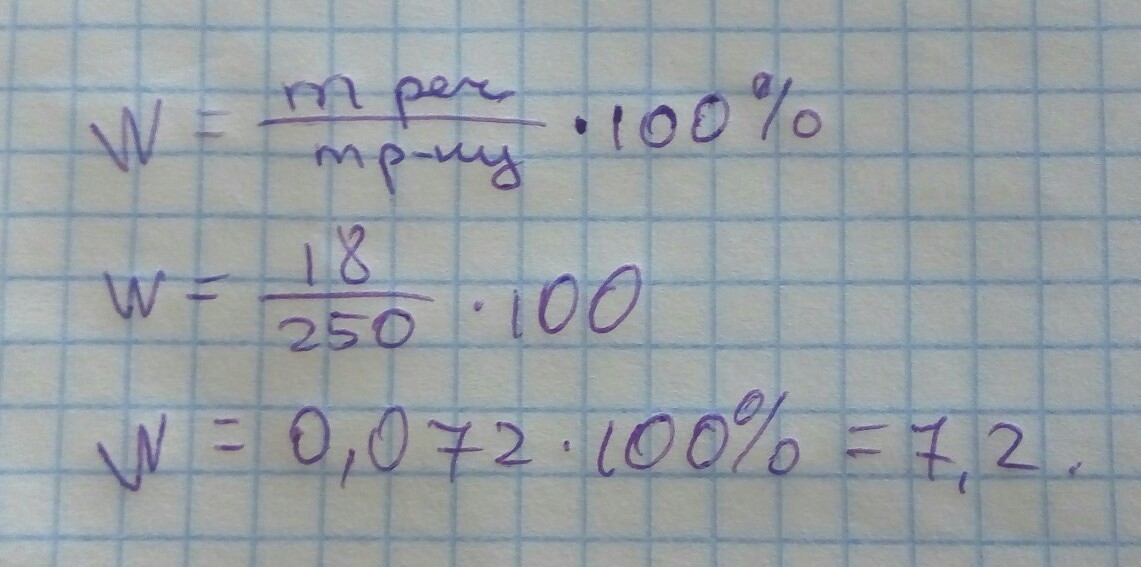 W = m реч / m р-ну · 100%
W = 18 / 250 · 100
W = 0,072 · 100% = 7,2.